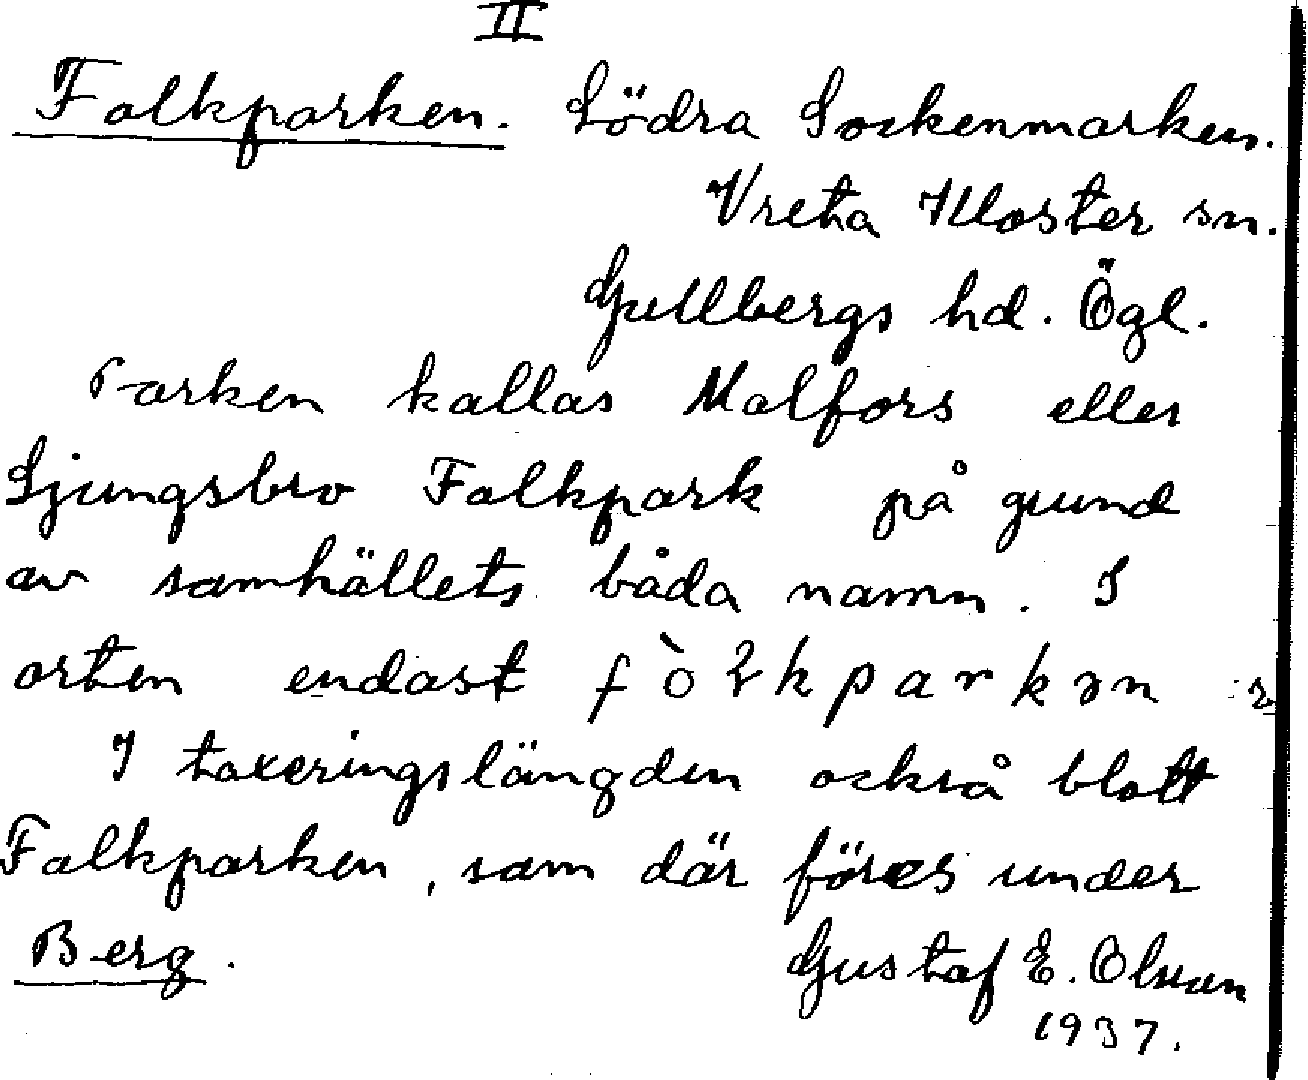 II
Folkparken. Södra Sockenmarken.
Vreta Kloster sn.
Gullbergs hd. Ögl.
Parken kallas Malfors eller
Ljungsbro Folkpark på grund
av samhällets båda namn. I
orten endast fòɽkparkən
I taxeringslängden också blott
Folkparken, som där föres under
Berg.
Gustaf E. Olsson
1937.